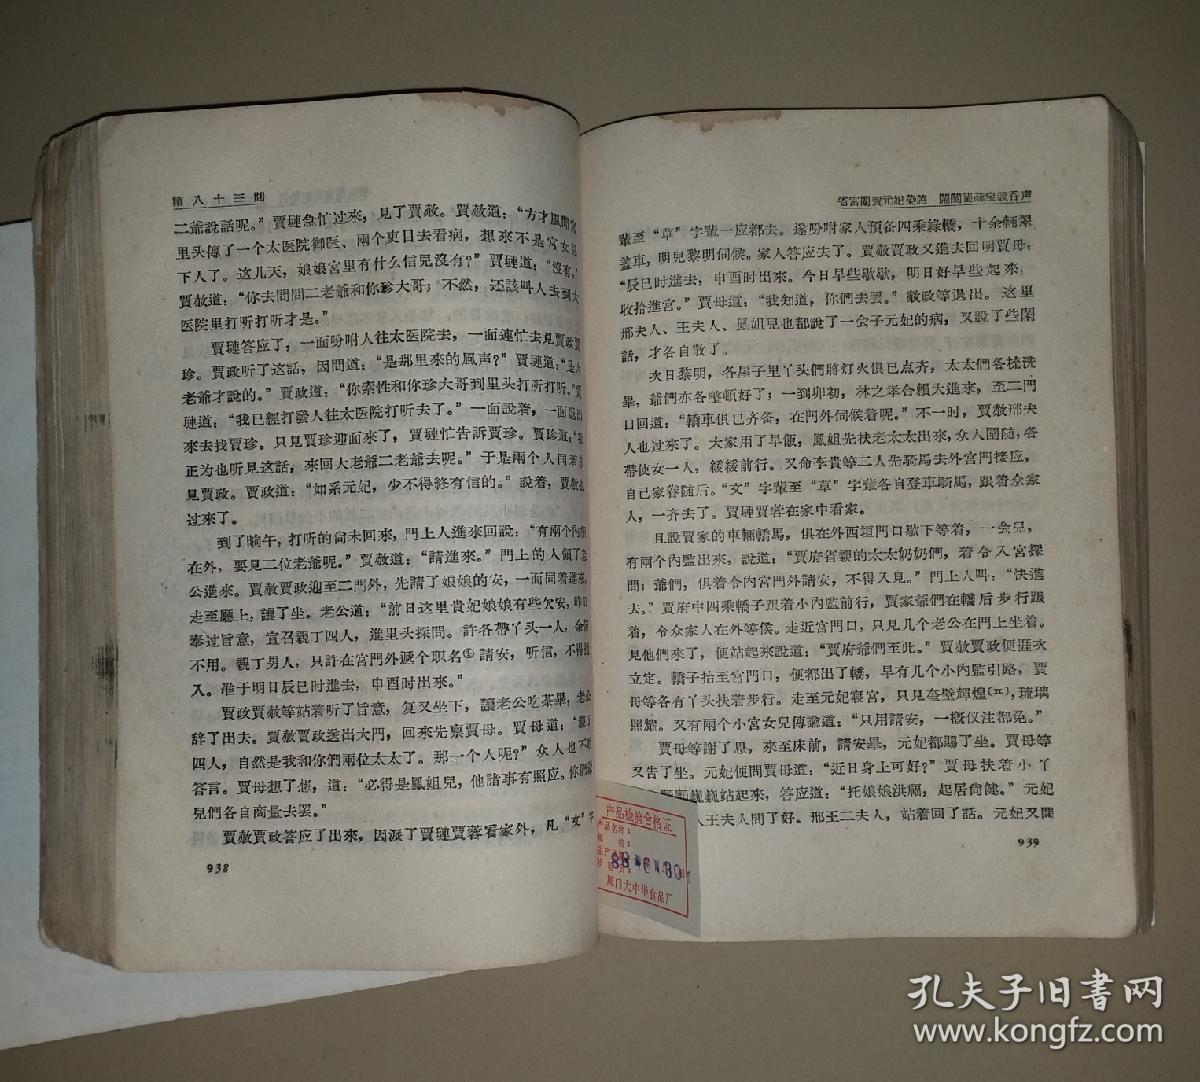 第八十三回
二爺說話呢。”賈璉急忙过來，見了賈赦。賈赦道：“方才風聞宮
里头傳了一个太医院御医、兩个吏目去看病，想來不是宮女兒
下人了。这几天，娘娘宮里有什么信兒沒有？”賈璉道：“沒有。”
賈赦道：“你去問問二老爺和你珍大哥；不然，还該叫人去到太
医院里打听打听才是。”
賈璉答应了，一面吩咐人往太医院去，一面連忙去見賈政賈
珍。賈政听了这話，因問道：“是那里來的風声？”賈璉道：“是大
老爺才說的。”賈政道：“你索性和你珍大哥到里头打听打听。”賈
璉道：“我已經打發人往太医院打听去了。”一面說着，一面退出
來去找賈珍。只見賈珍迎面來了，賈璉忙告訴賈珍。賈珍道：“我
正为也听見这話，來回大老爺二老爺去呢。”于是兩个人同着來
見賈政。賈政道：“如系元妃，少不得終有信的。”說着，賈赦也
过來了。
到了晌午，打听的尙未回來，門上人進來回說：“有兩个內相
在外，要見二位老爺呢。”賈赦道：“請進來。”門上的人領了老
公進來。賈赦賈政迎至二門外，先請了娘娘的安，一面同着進來，
走至廳上，讓了坐。老公道：“前日这里貴妃娘娘有些欠安，昨日
奉过旨意，宣召親丁四人，進里头探問。許各帶丫头一人，余皆
不用。親丁男人，只許在宮門外遞个职名①請安，听信，不得擅
入。准于明日辰巳时進去，申酉时出來。”
賈政賈赦等站着听了旨意，复又坐下，讓老公吃茶畢，老公
辞了出去。賈赦賈政送出大門，回來先禀賈母。賈母道：“親丁
四人，自然是我和你們兩位太太了。那一个人呢？”众人也不敢
答言。賈母想了想，道：“必得是鳳姐兒，他諸事有照应。你們爺
兒們各自商量去罢。”
賈赦賈政答应了出來，因派了賈璉賈蓉看家外，凡“文”字
938
省宮闈賈元妃染恙　鬧閨閫薛宝釵吞声
輩至“草”字輩一应都去。遂吩咐家人預备四乘綠轎，十余輛翠
盖車，明兒黎明伺候。家人答应去了。賈赦賈政又進去回明賈母：
“辰巳时進去，申酉时出來。今日早些歇歇，明日好早些起來，
收拾進宮。”賈母道：“我知道，你們去罢。”赦政等退出。这里
邢夫人、王夫人、鳳姐兒也都說了一会子元妃的病，又說了些閑
話，才各自散了。
次日黎明，各屋子里丫头們將灯火俱已点齐，太太們各梳洗
畢，爺們亦各整頓好了；一到卯初，林之孝合賴大進來，至二門
口回道：“轎車俱已齐备，在門外伺候着呢。”不一时，賈赦邢夫
人也过來了。大家用了早飯，鳳姐先扶老太太出來，众人圍随，各
帶使女一人，緩緩前行。又命李貴等二人先騎馬去外宮門接应，
自己家眷随后。“文”字輩至“草”字輩各自登車騎馬，跟着众家
人，一齐去了。賈璉賈蓉在家中看家。
且說賈家的車輛轎馬，俱在外西垣門口歇下等着，一会兒，
有兩个內監出來，說道：“賈府省親的太太奶奶們，着令入宮探
問；爺們，俱着令內宮門外請安，不得入見。”門上人叫：“快進
去。”賈府中四乘轎子跟着小內監前行，賈家爺們在轎后步行跟
着，令众家人在外等候。走近宮門口，只見几个老公在門上坐着。
見他們來了，便站起來說道：“賈府爺們至此。”賈赦賈政便捱次
立定。轎子抬至宮門口，便都出了轎，早有几个小內監引路，賈
母等各有丫头扶着步行。走至元妃寢宮，只見奎壁輝煌〔五〕，琉璃
照耀。又有兩个小宮女兒傳諭道：“只用請安，一概仪注都免。”
賈母等謝了恩，來至床前，請安畢，元妃都賜了坐。賈母等
又吿了坐。元妃便問賈母道：“近日身上可好？”賈母扶着小丫
顫顫巍巍站起來，答应道：“托娘娘洪福，起居尙健。”元妃
人王夫人問了好。邢王二夫人，站着回了話。元妃又問
939
产品检验合格证
产品名称：
厦门大中华食品厂
孔夫子旧书网
www.kongfz.com